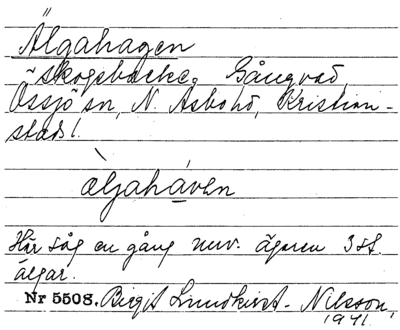 Älgahagen
skogsbacke, Gångvad,
Össjö sn, N. Åsbo hd, Kristian-
stads l.
äljahaven
Här såg en gång nuv. ägaren 3 st.
älgar.
Nr 5508. Birgit Lundkvist-Nilsson,
1941.